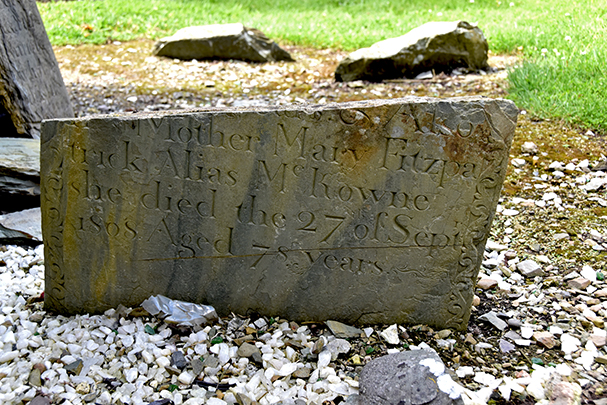 Mother Mary Fitzpa
trick Alias McKowne
she died the 27 of Sept.
1808 Aged 78 years